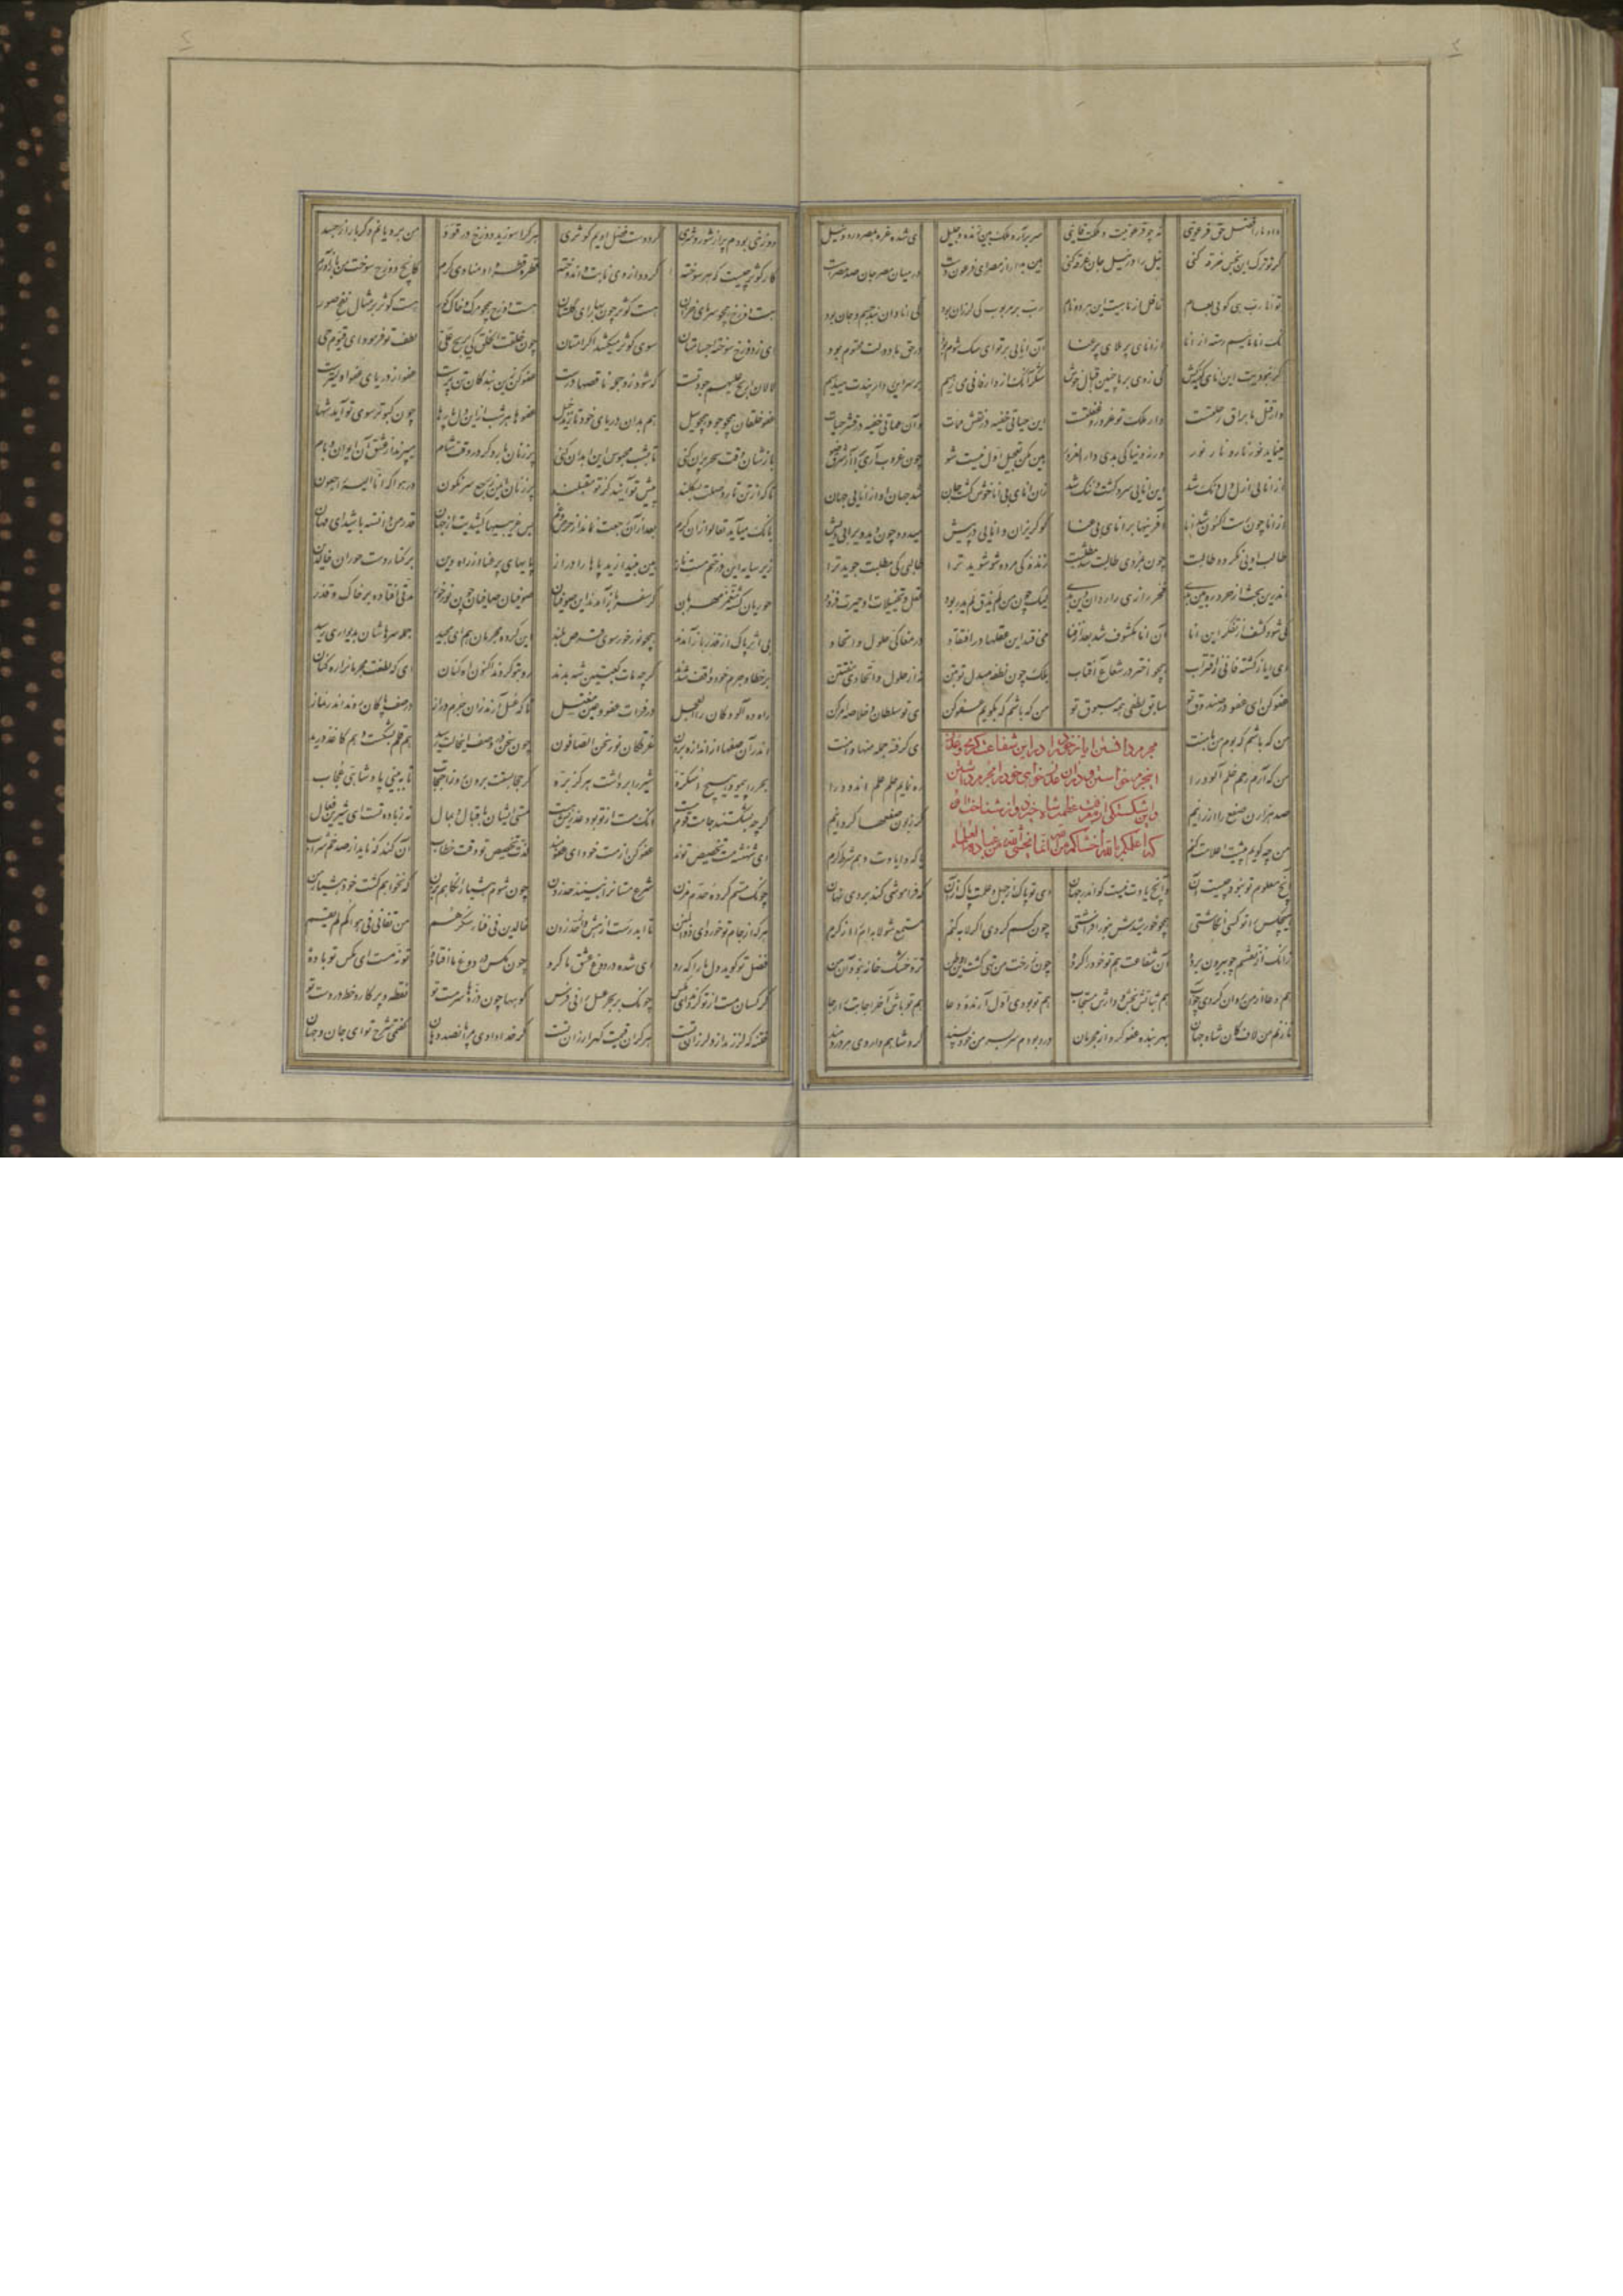 داد ما را فضل حق فرعونیی نه چو فرعونیت و ملکت فانیی سر برآر و ملک بین زنده و جلیل ای شده غره بمصر و رود نیل
کر تو ترک این نجس خرقه کنی نیل را در نیل جان غرقه کنی هین بدار از مصر ای فرعون دست در میان مصر جان صد مصر هست
تو انا رب همی کویی بعام غافل از ماهیت این هر دو نام رب بر مربوب کی لرزان بود کی انا دان بند جسم و جان بود
نک انا ماییم رسته از انا از انای پر بلای پر عنا آن انایی بر تو ای سک شوم بود در حق ما دولت محتوم بود
کر نبودیت این انایی کینه کش کی زدی بر ما چنین اقبال خوش شکر آنک از دار فانی می رهیم بر سر این دار پندت میدهیم
دار قتل ما براق رحلتست دار ملک تو غرور و غفلتست این حیاتی خفیه در نقش ممات وآن مماتی خفیه در قشر حیات
مینماید نور نار و نار نور ورنه دنیا کی بدی دار الغرور هین مکن تعجیل اول نیست شو چون غروب آری برآ از شرق ضو
از انایی ازل دل دنک شد این انایی سرد کشت و ننک شد زان انای بی انا خوش کشت جان شد جهان او از انایی جهان
از انا چون رست اکنون شد انا آفرینها بر انای بی عنا کو کریزان و انایی در پیش میدود چون دید ویرا بی ویش
طالب اویی نکردد طالبت چون بمردی طالبت شد مطلبت زنده کی مرده شو شوید ترا طالبی کی مطلبت جوید ترا
اندرین بحث ار خرد ره بین بدی فخر رازی رازدان دین بدی لیک چون من لم یذق لم یدر بود عقل و تخییلات او حیرت فزود
کی شود کشف از تفکر این انا آن انا مکشوف شد بعد از فنا می فتد این عقلها در افتقاد در مغاکی حلول و اتحاد
ای ایاز کشته فانی ز اقتراب همچو اختر در شعاع آفتاب بلک چون نطفه مبدل تو بتن نه از حلول و اتحادی مفتتن
عفو کن ای عفو در صندوق تو سابق لطفی همه مسبوق تو من که باشم که بکویم عفو کن ای تو سلطان و خلاصه امر کن
من که باشم که بوم من با منت ای کرفته جمله منها دامنت
مجرم دانستن ایاز خود را درین شفاعت کری و عذر
این جرم خواستن و در آن عذر خواهی خود را مجرم دانستن
و این شکستکی از عظمت شاه خیزد
که انا اعلمکم بالله و اخشاکم لله انما یخشی الله من عباده العلماء
من که آرم رحم خلم آلود را ره نمایم حلم علم اندود را
صد هزاران صفع را ارزانیم کر زبون صفعها کردانیم
من چه کویم پیشت اعلامت کنم یا که وا یادت دهم شرط کرم
آنچ معلوم تو نبود چیست آن وآنچ یادت نیست کو اندر جهان ای تو پاک از جهل و علمت پاک از آن که فراموشی کند بر وی نهان
هیچکس را تو کسی انکاشتی همچو خورشیدش بنور افراشتی چون کسم کردی اکر لابه کنم مستمع شو لابه ام را از کرم
زانک از نقشم چو بیرون بردۀ آن شفاعت هم تو خود را کردۀ چون ز رخت من تهی کشت این وطن تر و خشک خانه نبود آن من
هم دعا از من روان کردی چو آب هم ثباتش بخش و دارش مستجاب هم تو بودی اول آرنده دعا هم تو باش آخر اجابت را رجا
تا زنم من لاف کان شاه جهان بهر بنده عفو کرد از مجرمان درد بودم سر بسر من خود پسند کرد شاهم داروی هر دردمند
دوزخی بودم پر از شور و شری کرد دست فضل اویم کوثری هر کرا سوزید دوزخ در قود من برویانم دکر بار از جسد
کار کوثر چیست که هر سوخته کردد از وی نابت و اندوخته قطره قطره او منادی کرم کانچ دوزخ سوخت من باز آورم
هست دوزخ همچو سرمای خزان هست کوثر چون بهار ای کلستان هست دوزخ همچو مرک و خاک کور هست کوثر بر مثال نفخ صور
ای ز دوزخ سوخته اجسامتان سوی کوثر میکشد اکرامتان چون خلقت الخلق کی یربح علی لطف تو فرمود ای قیوم حی
لالان اربح علیهم جود تست که شود زو جمله ناقصها درست عفو کن زین بندکان تن پرست عفو از دریای عفو اولیترست
عفو خلقان همچو جو و همچو سیل هم بدان دریای خود تازند خیل عفوها هر شب ازین دل پارها چون کبوتر سوی تو آید شها
بازشان وقت سحر پران کنی تا بشب محبوس این ابدان کنی پر زنان بار دکر در وقت شام میپرند از عشق آن ایوان و بام
تا که از تن تار وصلت بسکلند پیش تو آیند کز تو مقبلند پر زنان ایمن ز رجع سرنکون در هوا که انا الیه راجعون
بانک میآید تعالوا زان کرم بعد از آن رجعت نماند از حرص و غم بس غریبیها کشیدیت از جهان قدر من دانسته باشید ای مهان
زیر سایه این درختم مست ناز هین بیندازید پاها را دراز پایهای پر عنا از راه دین بر کنار و دست حوران خالدین
حوریان کشته مغمز مهربان کز سفر باز آمدند این صوفیان صوفیان صافیان چون نور خور مدتی افتاده بر خاک و قذر
بی اثر پاک از قذر باز آمدند همچو نور خور سوی قرص بلند این کروه مجرمان هم ای مجید جمله سرهاشان بدیواری رسید
بر خطا و جرم خود واقف شدند کرچه مات کعبتین شه بدند رو بتو کردند اکنون اه کنان ای که لطفت مجرمانرا ره کنان
راه ده آلودکانرا العجل در فرات عفو و عین مغتسل تا که غسل آرند زان جرم دراز در صف پاکان روند اندر نماز
اندر آن صفها ز اندازه برون غرقکان نور نحن الصافون چون سخن در وصف این حالت رسید هم قلم بشکست و هم کاغذ درید
بحر را پیمود هیچ اسکرۀ شیر را برداشت هرکز برۀ کر حجابستت برون رو ز احتجاب تا ببینی پادشاهی عجاب
کرچه بشکستند جامت قوم مست آنک مست از تو بود عذریش هست مستی ایشان باقبال و بمال نه ز باده تست ای شیرین فعال
ای شهنشه مست تخصیص توند عفو کن از مست خود ای عفومند لذت تخصیص تو وقت خطاب آن کند که ناید از صد خم شراب
چونک مستم کردۀ حدم مزن شرع مستانرا نبیند حد زدن چون شوم هشیار آنکاهم بزن که نخواهم کشت خود هشیار من
هرکه از جام تو خورد ای ذوالمنن تا ابد رست از هش و از حد زدن خالدین فی فناء سکرهم من تفانی فی هواکم لم یقم
فضل تو کوید دل ما را که رو ای شده در دوغ عشق ما کرو چون مکس در دوغ ما افتادۀ تو نۀ مست ای مکس تو بادۀ
کرکسان مست از تو کردند ای مکس چونک بر بحر عسل رانی فرس کوهها چون ذرها سرمست تو نقطه و پرکار و خط در دست تو
فتنه که لرزند ازو لرزان تست هر کران قیمت کهر ارزان تست کر خدا دادی مرا پانصد دهان کفتمی شرح تو ای جان و جهان